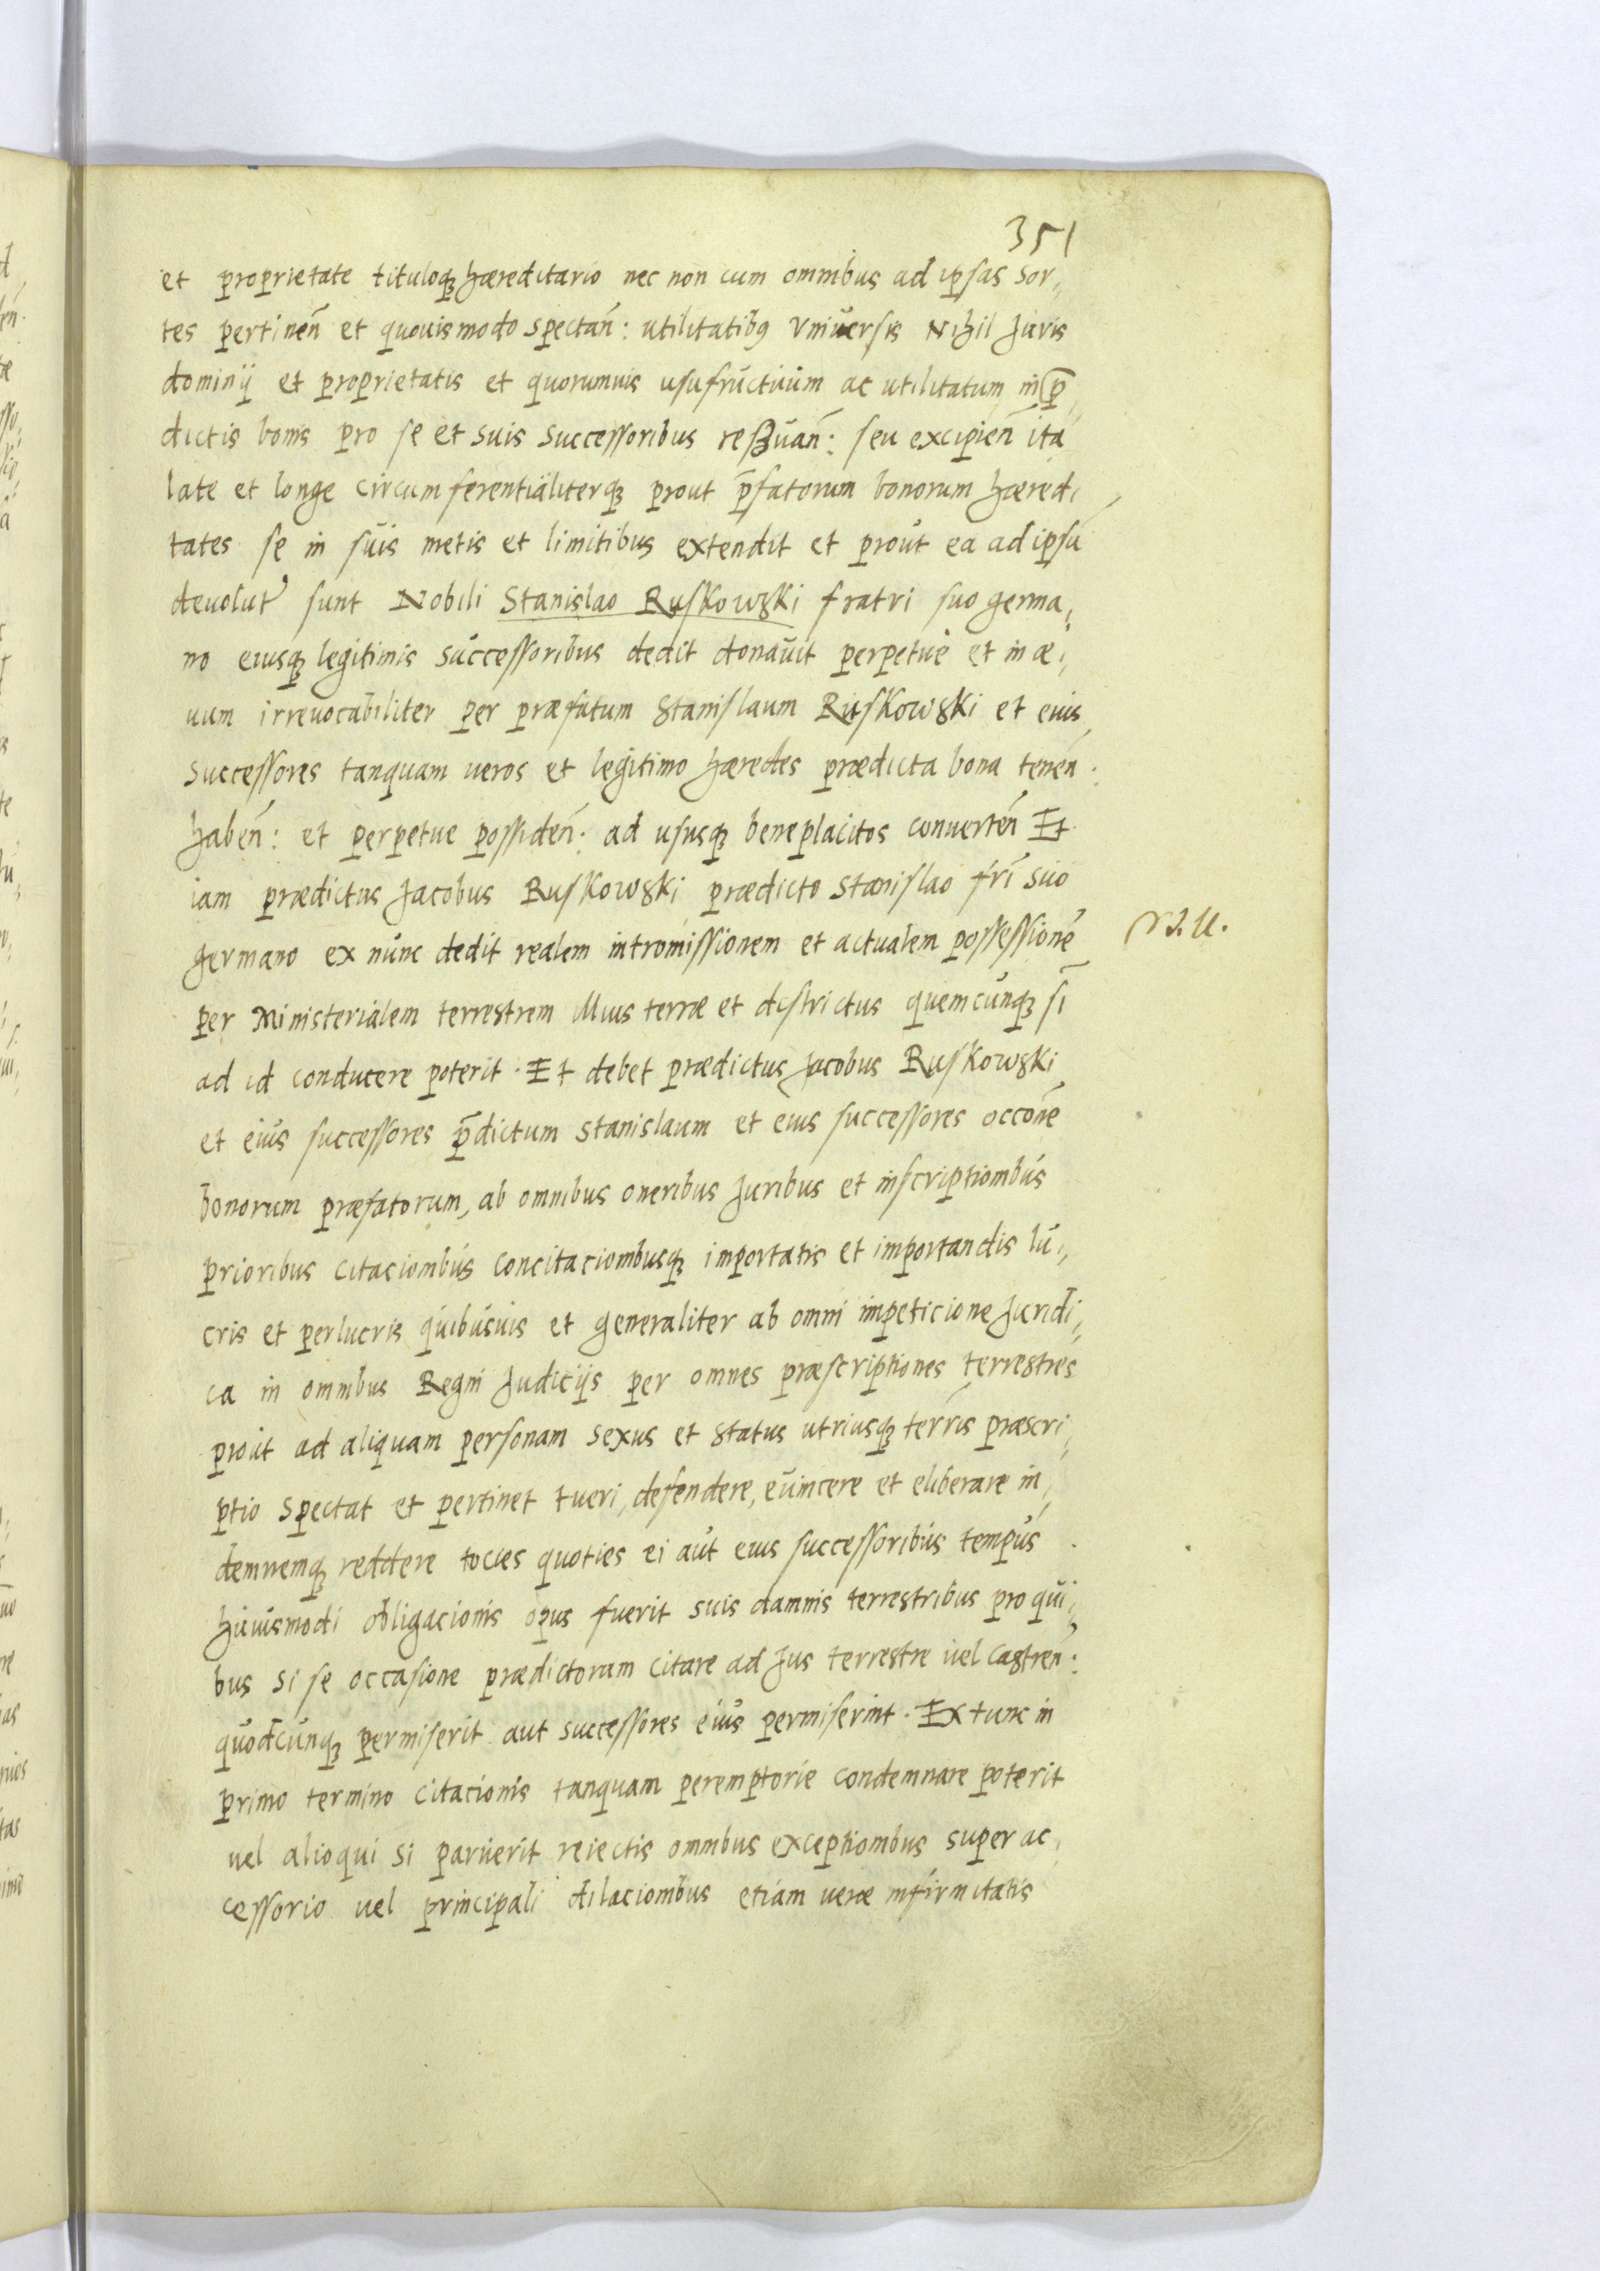 351
et proprietate tituloq₃ hæreditario nec non cum omnibus ad ipsas sor,,
tes pertineñ et quouismodo spectañ: utilitatibꝰ Vniuersis Nihil Juris
dominij et proprietatis et quorumuis usufructuum ac utilitatum in p̄,,
dictis bonis pro se et suis successoribus resßuañ: seu excipieñ ita
late et longe circumferentialiterq₃ prout p̄fatorum bonorum hæredi,,
tates se in suis metis et limitibus extendit et prout ea ad ipsū
deuolut̛ sunt Nobili Stanislao Ruskowski fratri suo germa,,
no eiusq₃ legitimis successoribus dedit donauit perpetue et in æ,,
uum irreuocabiliter per præfatum Stanislaum Ruskowski et eius
successores tanquam ueros et legitimo hæredes prædicta bona teneñ.
habeñ: et perpetue possideñ: ad ususq₃ beneplacitos conuerteñ Et
iam prædictus Jacobus Ruskowski prædicto Stanislao fr̄i suo
germano ex nunc dedit realem intromissionem et actualem possessionē
per Ministerialem terrestrem illius terræ et districtus quemcunq₃ sī
ad id conducere poterit. Et debet prædictus Jacobus Ruskowski
et eius successores p̄dictum Stanislaum et eius successores occōne
bonorum præfatorum, ab omnibus oneribus Juribus et inscriptionibus
prioribus citacionibus concitacionibusq₃ importatis et importandis lu,,
cris et perlucris quibusuis et generaliter ab omni impeticione Juridi,,
ca in omnibus Regni Judicijs per omnes præscriptiones terrestres
prout ad aliquam personam sexus et status utriusq₃ terr̄is præscri,,
ptio spectat et pertinet tueri, defendere, euincere et eliberare in,,
demnemq₃ reddere tocies quoties ei aut eius successoribus tempus
huiusmodi obligacionis opus fuerit suis damnis terrestribus pro qui,,
bus si se occasione prædictorum citare ad Jus terrestre uel castreñ:
quodcunq₃ permiserit aut successores eius permiserint. Ex tunc in
primo termino citacionis tanquam peremptorie condemnare poterit
uel alioqui si paruerit reiectis omnibus exceptionibus super ac,,
cessorio uel principali dilacionibus etiam ueræ infirmitatis